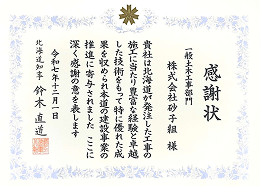 感謝状
一般土木工事部門
株式会社砂子組 様
貴社は北海道が発注した工事の
施工に当たり豊富な経験と卓越
した技術をもって特に優れた成
果を収められ本道の建設事業の
推進に寄与されました ここに
深く感謝の意を表します
令和七年十二月一日
北海道知事 鈴木直道